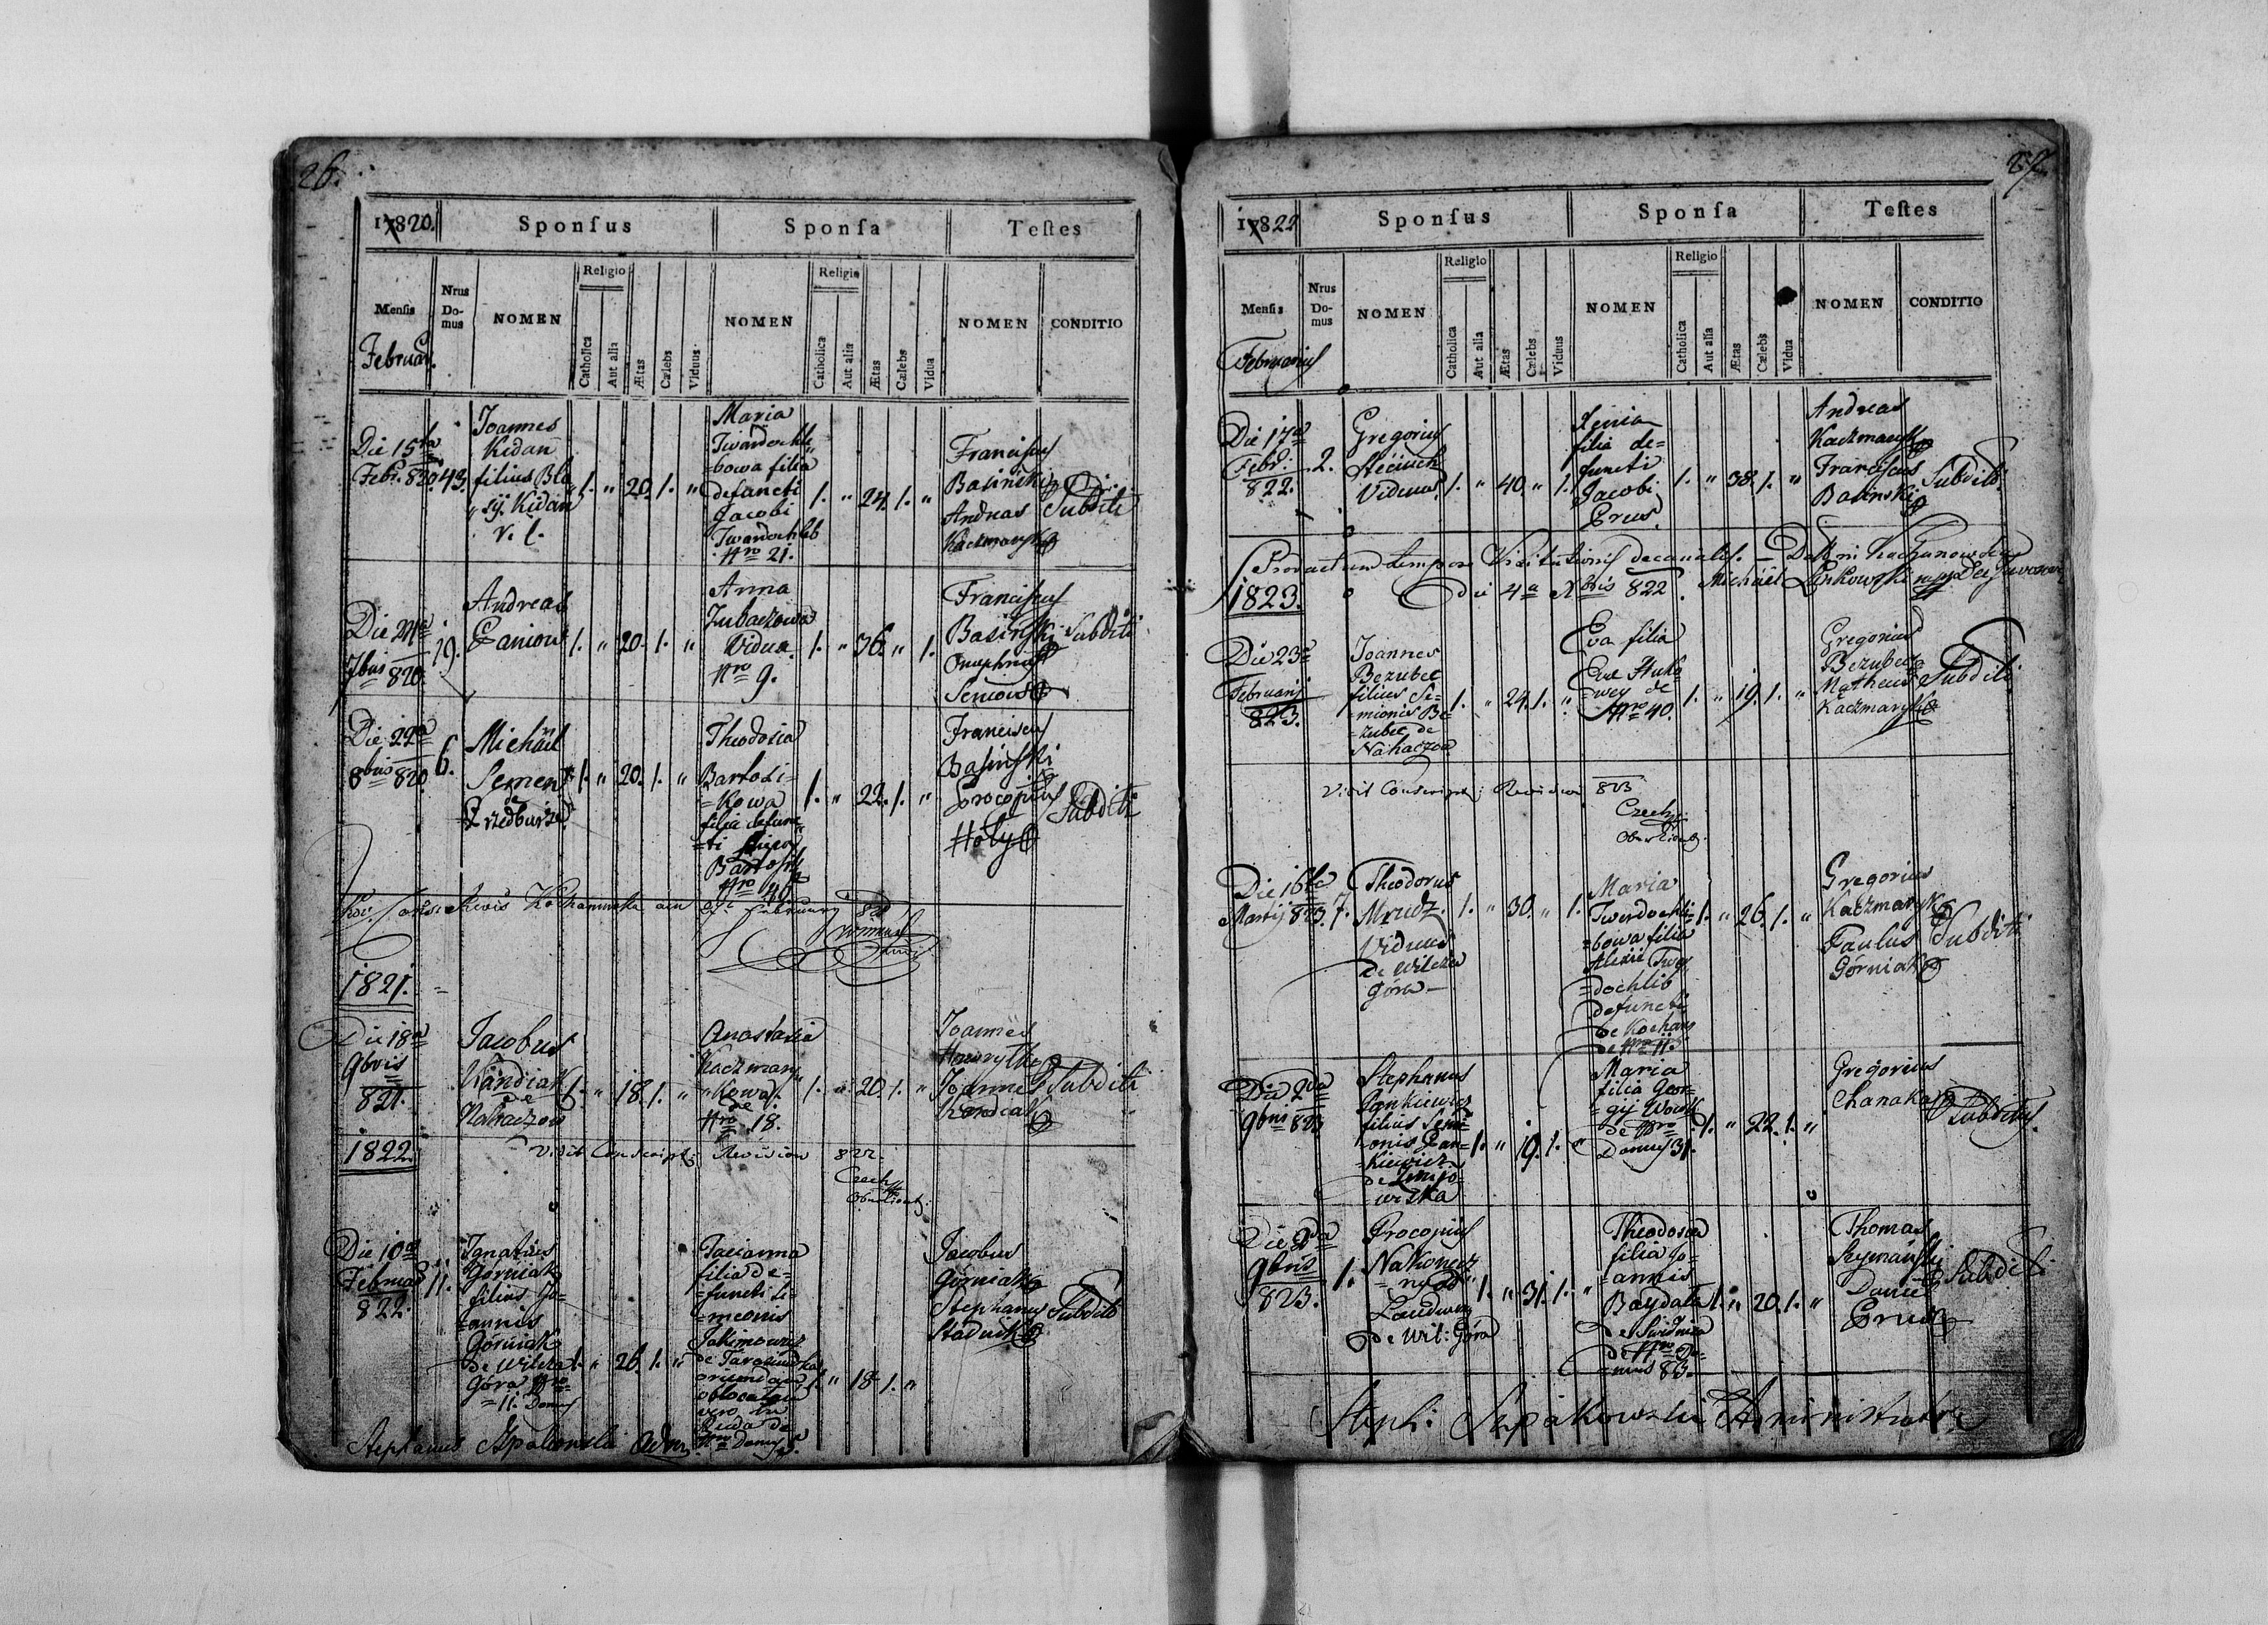 26.
1820.
Sponſus
Sponſa
Teſtes
Menſis
Nrus Do-mus
NOMEN
Religio
Catholica
Aut alia
Ætas
Cælebs
Viduus
NOMEN
Religio
Catholica
Aut alia
Ætas
Cælebs
Vidua
NOMEN
CONDITIO
Februar.
Die 15ta
Febr. 820.
43.
Joannes
Kidan
filius Bla
sij Kidan
1. " 20. 1. "
Maria
Twardochle
=bowa filia
defuncti
Jacobi
Twardochlib
Nro 21.
1. " 24. 1. "
Franciscus
Basinski
Andreas
Kaczmarysk
Subditi
Die
7bris 820.
19.
Andreas
Panion
1. " 20. 1. "
Anna
Zubaczowa
Vidua
Nro 9.
1. " 36. " 1.
Franciscus
Basinski
Onuphrius
Seniow
Subditi
Die 22a
8bris 820.
6.
Michäel
Semen
de
Przedburze
1. " 20. 1. "
Theodosia
Bartosi=
=kowa
filia defunc
=ti
Bartosik
Nro 46
1. " 22. 1. "
Franciscus
Basinski
Procopius
Hoły
Subditi
February
1821.
Die 18a
9bris
821.
Jacobus
Kandiak
de
Nahaczow
1. " 18. 1. "
Anastasia
Kaczmary
=kowa
de
Nro 18.
1. " 20. 1. "
Joannes
Hawryłko
Joannes
Kondiak
Subditi
1822.
Vidit Conscript: Revision 822.
Czech
Oberlieut:
Die 10a
Februar
822.
11.
Ignatius
Górniak
filius Jo=
=annis
Górniak
de Wilcza
Góra Nro
11. Domus
1. " 26. 1. "
Tacianna
filia de=
=functi Si=
=meonis
Jakimowicz
de
oriunda
oblocata
vero in
de
Nro Domus 5.
1. " 18. 1. "
Jacobus
Górniak
Stephanus
Stadnik
Subditi
Stephanus Szpakowski Adm.
27.
1822
Sponſus
Sponſa
Teſtes
Menſis
Nrus Do-mus
NOMEN
Religio
Catholica
Aut alia
Ætas
Cælebs
Viduus
NOMEN
Religio
Catholica
Aut alia
Ætas
Cælebs
Vidua
NOMEN
CONDITIO
Februarius
Die 17a
Febr:
822.
2.
Gregorius
Steciuch
Viduus.
1. " 40. " 1.
Xenia
filia de=
functi
Jacobi
Prus.
1. " 38. 1. "
Andreas
Kaczmarysk
Franciscus
Basinski
Subditi
Productum tempore Visitationis decanalis.
die 4a Xbris 822. Michäel
1823.
Die 23a
Februarij
823.
Joannes
Bezubec
filius Si=
=mionis Be=
=zubec de
Nahaczow
1. " 24. 1. "
Eva filia
Evæ Huko
=wey de
Nro 40.
1. " 19. 1. "
Gregorius
Bezubec
Matheus
Kaczmaryk
Subditi
Vidit Conscript: Revision 823
Czech
Oberlieut:
Die 16ta
Martij 823.
7.
Theodorus
Mrudz
Viduus
de Wilcza
Góra
1. " 30. " 1.
Maria
Twerdochli=
=bowa filia
Alexii Twer
=dochlib
defuncti
de Kochan
de Nro 11.
1. " 26. 1. "
Gregorius
Kaczmaryk
Paulus
Górniak
Subditi
Die 2da
9bris 823
Stephanus
Pankiewicz
filius Simi
onis Pan=
=kiewicz
de
1. " 19. 1. "
Maria
filia Geor=
=gij Wowk
de Nro
Domus 31.
1. " 22. 1. "
Gregorius
Chanaka
Subditus.
Die 2da
9bris
823.
1.
Procopius
Nakonecz
=ny
de Wil: Góra
1. " 31. 1. "
Theodosia
filia Jo=
=annis
Baydała
de Swidnica
de Nro Do=
=mus 83.
1. " 20. 1. "
Thomas
Szymański
Daniel
Prus
Subditi
Steph: Szpakowski Administrator